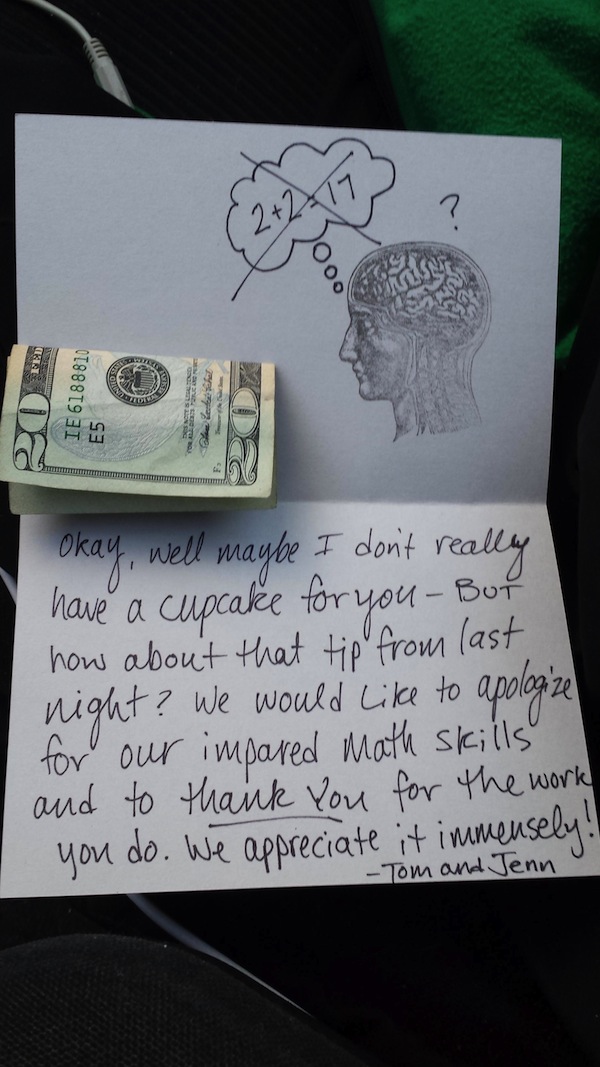 2+2=17
?
FED
20
IE6188810
E5
20
Okay, well maybe I don't really
have a cupcake for you - BUT
how about that tip from last
night? We would like to apologize
for our impared math skills
and to thank you for the work
you do. We appreciate it immensely!
-Tom and Jenn